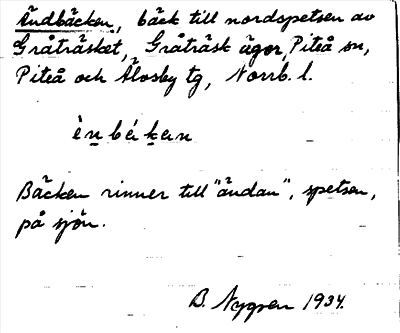 Ändbäcken, bäck till nordspetsen av
Gråträsket, Gråträsk ägor, Piteå sn,
Piteå och Älvsby tg, Norrb. l.
èn̠ béḵen
Bäcken rinner till "ändan", spetsen,
på sjön.
B. Nygren 1934.